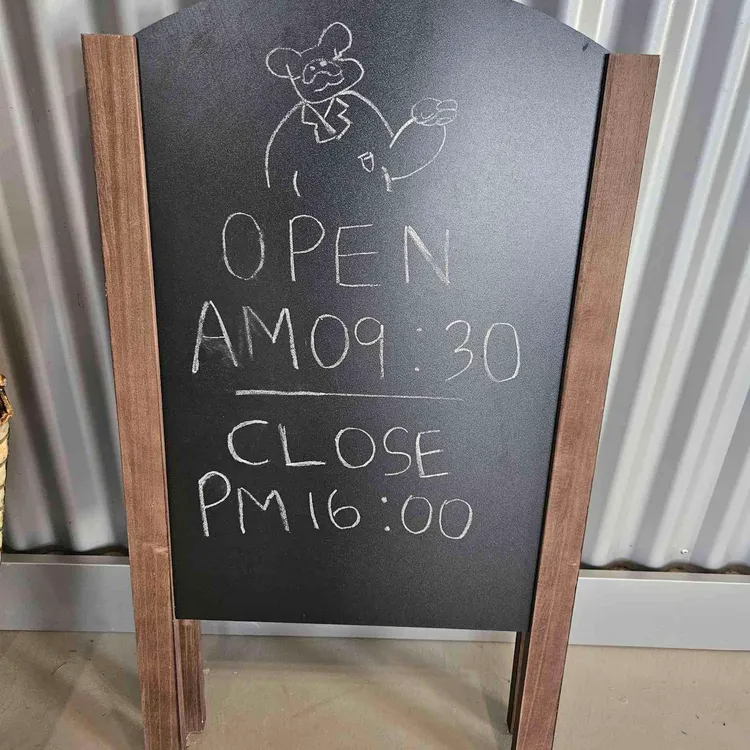 OPEN
AM09:30
CLOSE
PM16:00